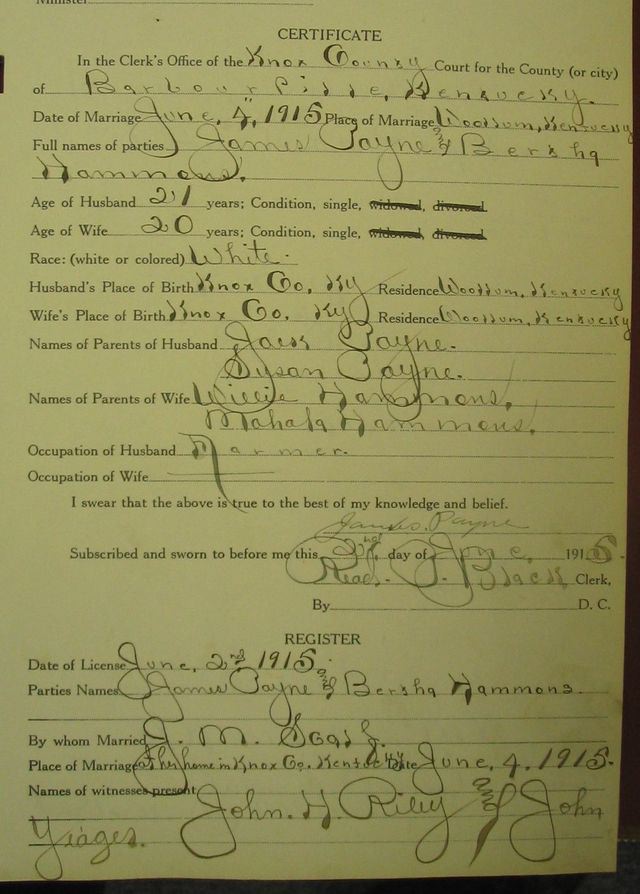 CERTIFICATE
In the Clerk's Office of the Knox County Court for the County (or city)
of Barbourville, Kentucky.
Date of Marriage June, 4", 1915 Place of Marriage Woollum, Kentucky
Full names of parties James Payne & Bertha
Hammons.
Age of Husband 21 years; Condition, single, widowed, divorced
Age of Wife 20 years; Condition, single, widowed, divorced
Race: (white or colored) White.
Husband's Place of Birth Knox Co, Ky Residence Woollum, Kentucky
Wife's Place of Birth Knox Co, Ky Residence Woollum, Kentucky
Names of Parents of Husband Jack Payne.
Susan Payne.
Names of Parents of Wife Willie Hammons,
Mahala Hammons.
Occupation of Husband Farmer.
Occupation of Wife
I swear that the above is true to the best of my knowledge and belief.
James. Payne
Subscribed and sworn to before me this 2nd, day of June, 1915.
Read P. Black Clerk,
By D. C.
REGISTER
Date of License June, 2nd 1915.
Parties Names James Payne & Bertha Hammons.
By whom Married J. M.
Place of Marriage at her home in Knox Co. Kentucky Date June, 4, 1915.
Names of witnesses present John. H. Riley and John
Yiager.